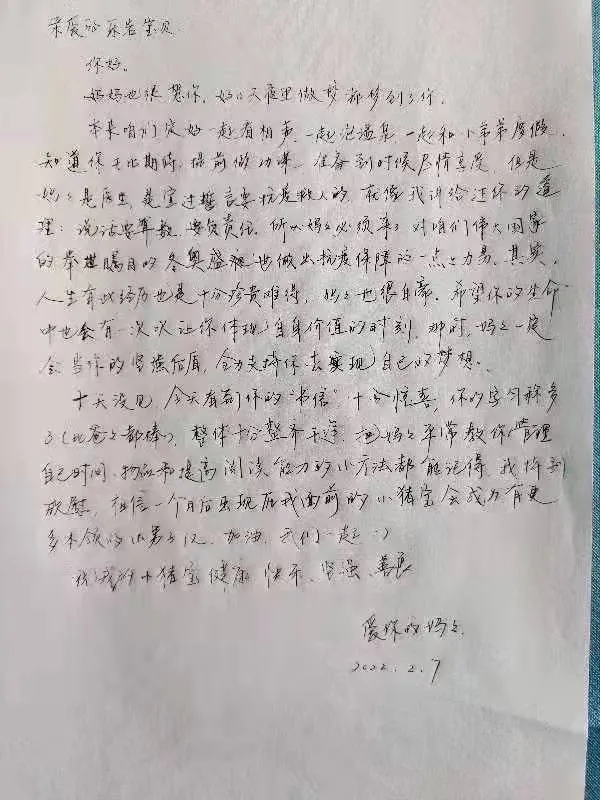 亲爱的乐岩宝贝
你好。
妈妈也很想你,好几天夜里做梦都梦到了你。
本来咱们定好一起看相声,一起泡温泉,一起和小弟弟度假,
知道你无比期待,提前做功课,准备到时候尽情享受,但是
妈妈是医生,是宣过誓言要抗疫救人的,就像我讲给过你的道
理:说话要算数,要负责任。所以妈妈必须来,对咱们伟大国家
的举世瞩目的冬奥盛 也做出抗疫保障的一点点力量。其实,
人生有此经历也是十分珍贵难得,妈妈也很自豪。希望你的生命
中也会有一次次让你体现自身价值的时刻,那时,妈妈一定
会当你的坚强后盾,全力支持你去实现自己的梦想。
十天没见,今天看到你的“书信”十分惊喜,你的字写得好多
了(比爸爸都棒),整体十分整齐 ,把妈妈平常教你管理
自己时间、物品和提高阅读能力的小方法都能记得,我感到
欣慰,相信一个月后出现在我面前的小猪宝会成为有更
多本领的小男子汉,加油,我们一起 :)
祝我的小猪宝健康、快乐、坚强、善良
爱你的妈妈
2022.2.7